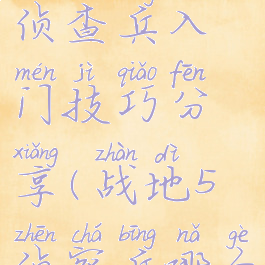 侦查兵入
mén jì qiǎo fēn
门技巧分
xiǎng zhàn dì
享(战地5
zhēn chá bīng nǎ gè
侦察兵哪个